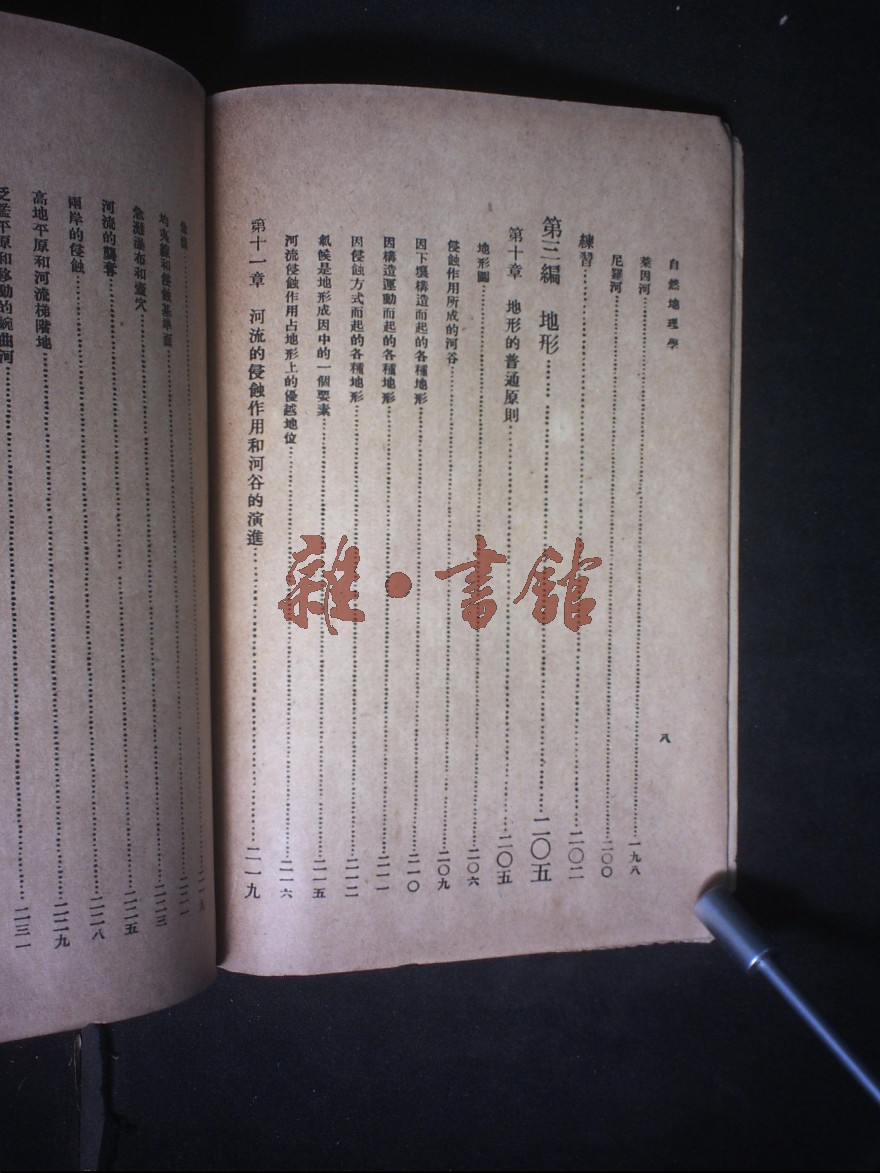 自然地理學
萊因河……一九八
尼羅河……二〇〇
練習……二〇二
第三編 地形……二〇五
第十章 地形的普通原則……二〇五
地形圖……二〇六
侵蝕作用所成的河谷……二〇九
因下壤構造而起的各種地形……二一〇
因構造運動而起的各種地形……二一一
因侵蝕方式而起的各種地形……二一二
氣候是地形成因中的一個要素……二一五
河流侵蝕作用占地形上的優越地位……二一六
第十一章 河流的侵蝕作用和河谷的演進……二一九
八
雜·書館
均夷線和侵蝕基準面……二二三
急湍瀑布和壺穴……二二五
河流的襲奪……二二八
兩岸的侵蝕……二二九
高地平原和河流梯階地……二三一
泛濫平原和移動的蜿曲河